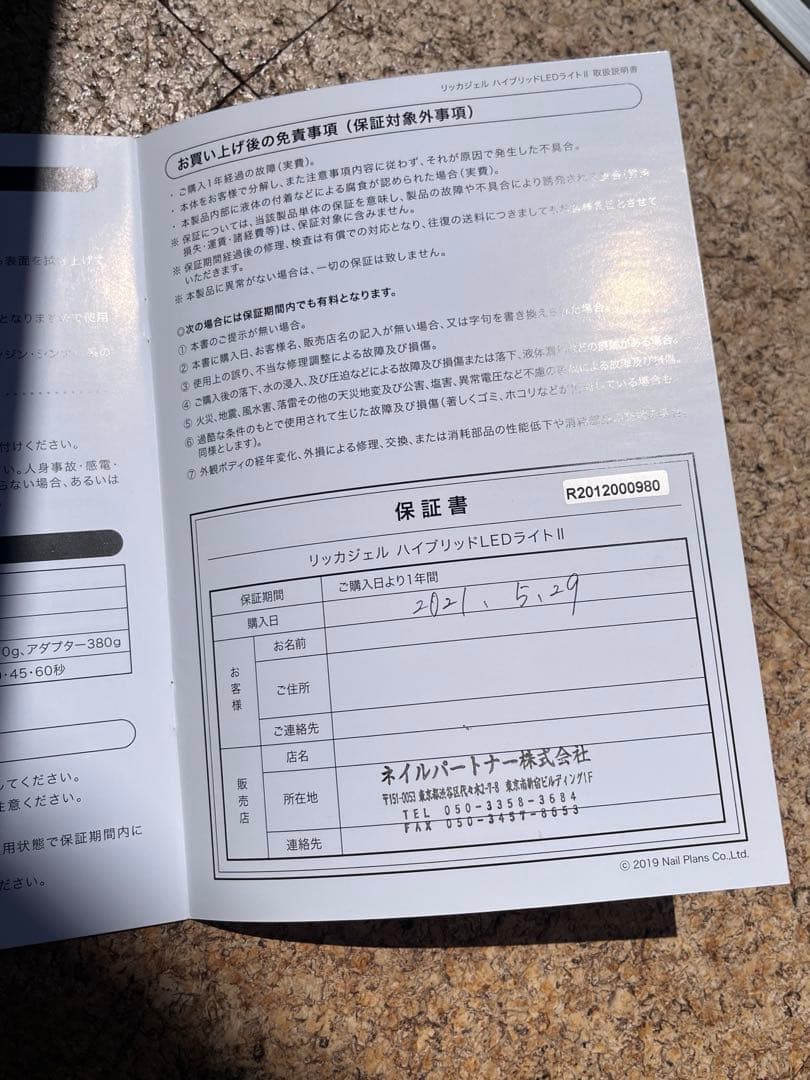 リッカジェル ハイブリッドLEDライトⅡ 取扱説明書
お買い上げ後の免責事項（保証対象外事項）
・ご購入1年経過の故障（実費）。
・本体をお客様で分解し、また注意事項内容に従わず、それが原因で発生した不具合。
・本製品内部に液体の付着などによる腐食が認められた場合（実費）。
※保証については、当該製品単体の保証を意味し、製品の故障や不具合により誘発され
損失・運賃・諸経費等）は、保証対象に含みません。
※保証期間経過後の修理、検査は有償での対応となり、往復の送料につきましても
いただきます。
※本製品に異常がない場合は、一切の保証は致しません。
◎次の場合には保証期間内でも有料となります。
①本書のご提示が無い場合。
②本書に購入日、お客様名、販売店名の記入が無い場合、又は字句を書き換えられた場合。
③使用上の誤り、不当な修理調整による故障及び損傷。
④ご購入後の落下、水の浸入、及び圧迫などによる故障及び損傷または落下、液体漏れなどの痕跡がある場合。
⑤火災、地震、風水害、落雷その他の天災地変及び公害、塩害、異常電圧など不慮の による故障及び損傷。
⑥過酷な条件のもとで使用されて生じた故障及び損傷（著しくゴミ、ホコリなどが している場合も
同様とします）。
⑦外観ボディの経年変化、外損による修理、交換、または消耗部品の性能低下や消耗部品
保証書
R2012000980
リッカジェル ハイブリッドLEDライトⅡ
保証期間 ご購入日より1年間
購入日 2021. 5. 29
お客様
お名前
ご住所
ご連絡先
販売店
店名
ネイルパートナー株式会社
所在地
〒151-0053 東京都渋谷区代々木2-7-8 東京南新宿ビルディング1F
TEL 050-3358-3684
FAX 050-3457-8653
連絡先
© 2019 Nail Plans Co.,Ltd.
表面を拭き上げて
となりますので使用
ンジン・シンナー系の
付けください。
い。人身事故・感電・
らない場合、あるいは
0g、アダプター380g
・45・60秒
してください。
注意ください。
用状態で保証期間内に
ださい。